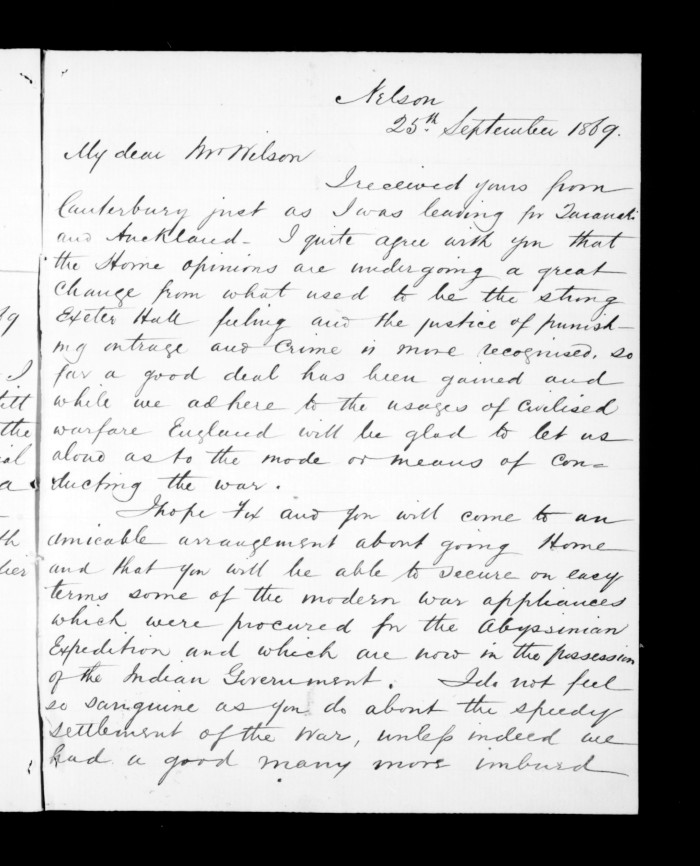 Nelson
25th September 1869.
My dear Mr Wilson
I received yours from
Canterbury just as I was leaving for Taranaki
and Auckland - I quite agree with you that
the Home opinions are undergoing a great
change from what used to be the strong
Exeter Hall feeling and the justice of punish-
ing outrage and Crime is more recognised. so
far a good deal has been gained and
while we adhere to the usages of civilised
warfare England will be glad to let us
alone as to the mode or means of con=
ducting the war.
I hope Fox and you will come to an
amicable arrangement about going Home
and that you will be able to secure on easy
terms some of the modern war appliances
which were procured for the Abyssinian
Expedition and which are now in the possession
of the Indian Government. I do not feel
so sanguine as you do about the speedy
settlement of the War, unless indeed we
had a good many more imbued